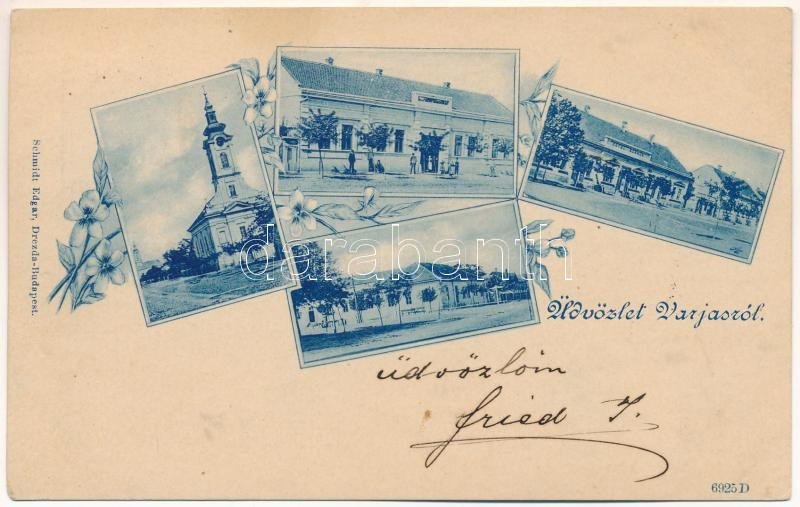 Schmidt Edgar, Drezda-Budapest.
darabanth.com
Üdvözlet Varjasról.
üdvözlöm
Fried I.
6925 D